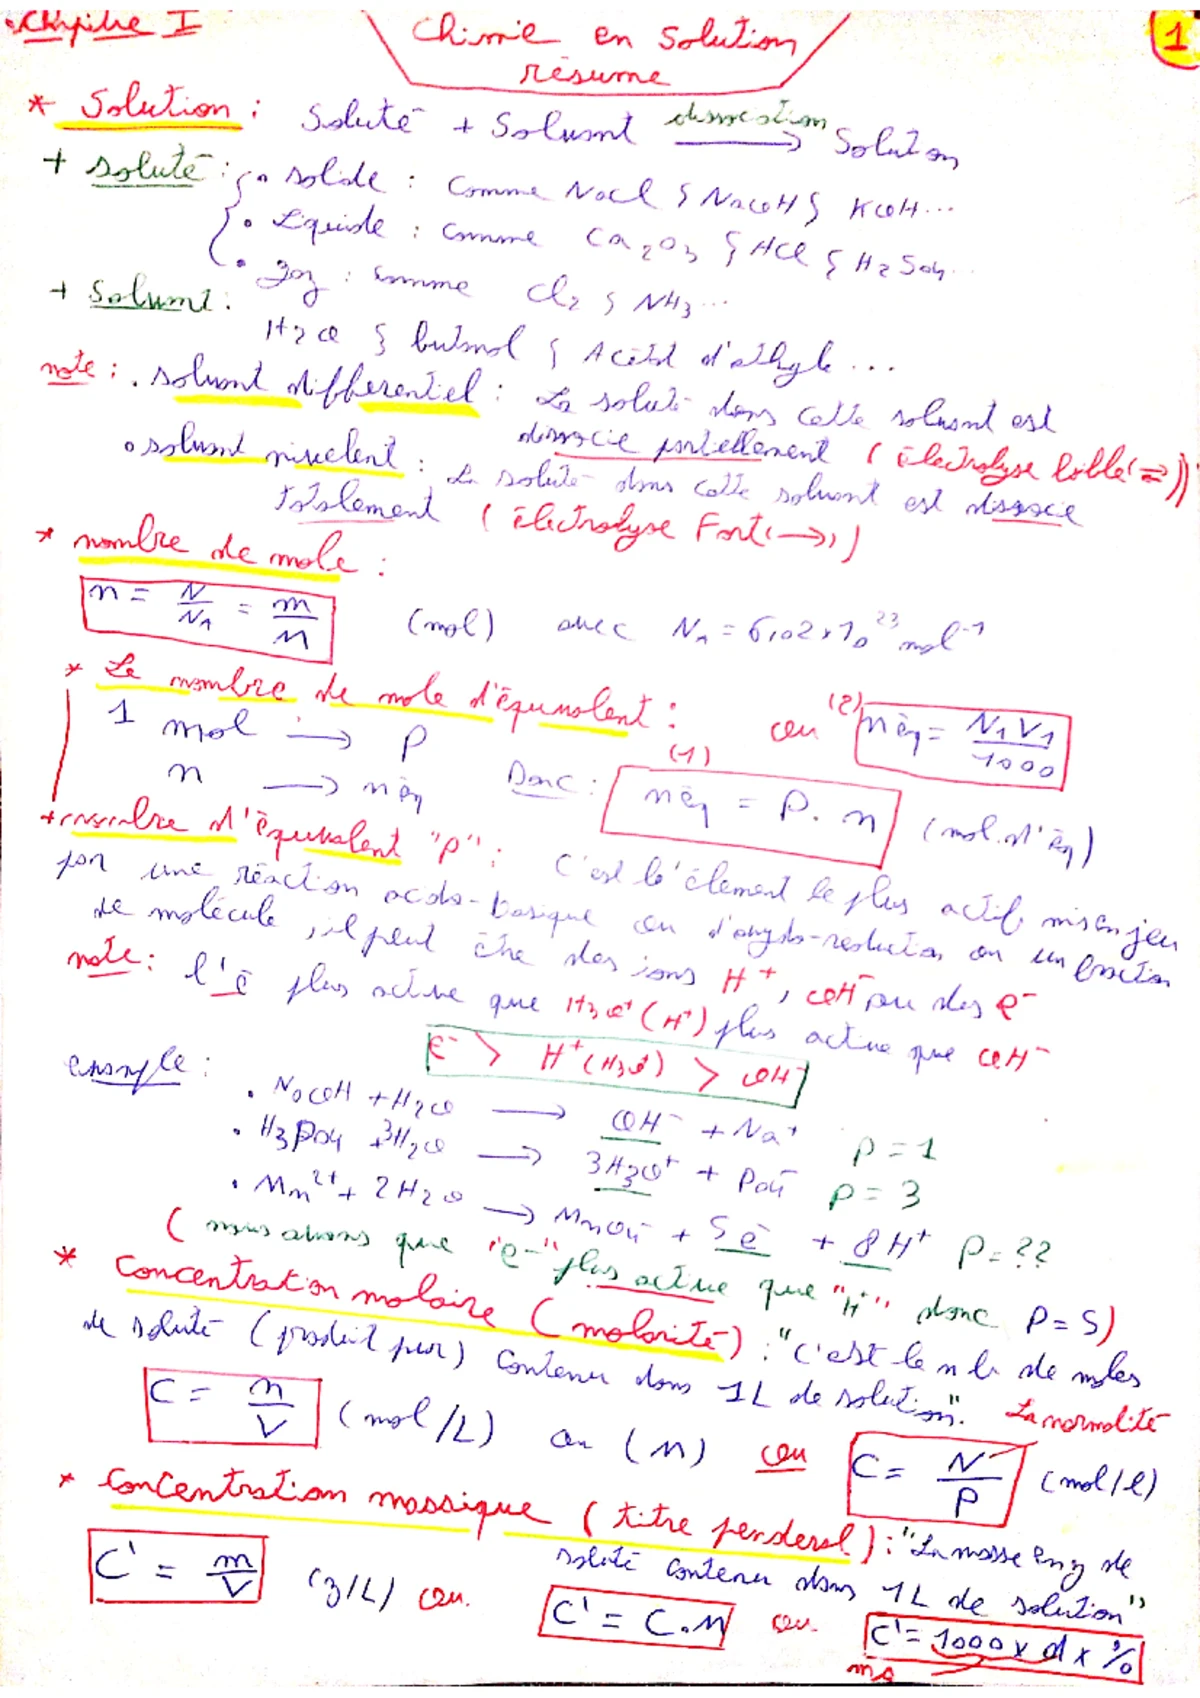 Chapitre I
Chimie en Solution
résumé
1
* Solution : Soluté + Solvant dissociation → Solution
+ soluté : • solide : comme NaCl ; NaOH ; KOH...
• Liquide : comme Ca2O3 ; HCl ; H2SO4...
• gaz : comme Cl2 ; NH3...
+ Solvant :
H2O ; butanol ; Acétat d'athyle...
note : • solvant differentiel : La soluté dans cette solvant est
dissocie partiellement ( électrolyse faible (⇌))
• solvant nivelent : La soluté dans cette solvant est dissocie
totalement ( électrolyse Fort (→) )
* nombre de mole :
n = N/NA = m/M (mol) avec NA = 6,02 x 10^23 mol^-1
* Le nombre de mole d'équivalent :
1 mol → P
n → néq Donc : (1) néq = P. n (mol. d'éq) ou (2) néq = N1V1/1000
+ nombre d'équivalent "P" : C'est l'élement le plus actif mis en jeu
par une réaction acido-basique ou d'oxydo-reduction ou un fonction
de molécule, il peut être des ions H+, OH- ou des e-
note : l'é plus active que H3O+ (H+) plus active que OH-
e- > H+ (H3O+) > OH-
exemple :
• NaOH + H2O → OH- + Na+ P = 1
• H3PO4 + 3H2O → 3H3O+ + PO4- P = 3
• Mn2+ + 2H2O → MnO4- + 5é + 8H+ P = ??
( nous avons que "e-" plus active que "H+" donc P = 5)
* Concentration molaire ( molarité ) : "C'est le nb de moles
de soluté (produit pur) contenu dans 1L de solution".
C = n/V (mol/L) ou (M) ou C = N/P (mol/l) La normalité
* Concentration massique ( titre penderal ) : "La masse en g de
soluté contenu dans 1L de solution"
C' = m/V (g/L) ou. C' = C.M ou. C' = 1000 x d x %
ms